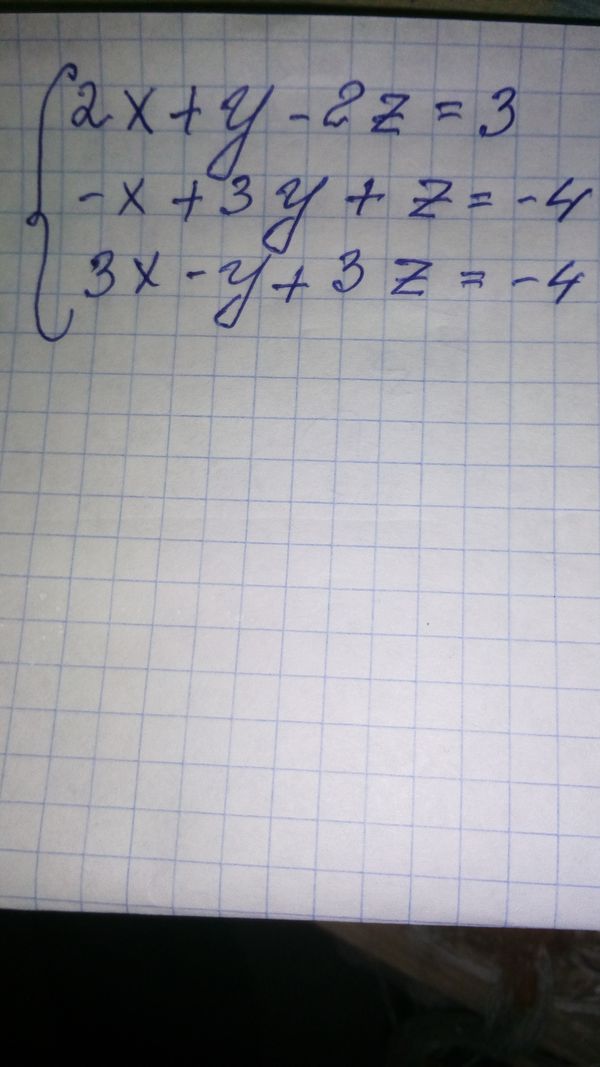 2x+y-2z=3
-x+3y+z=-4
3x-y+3z=-4